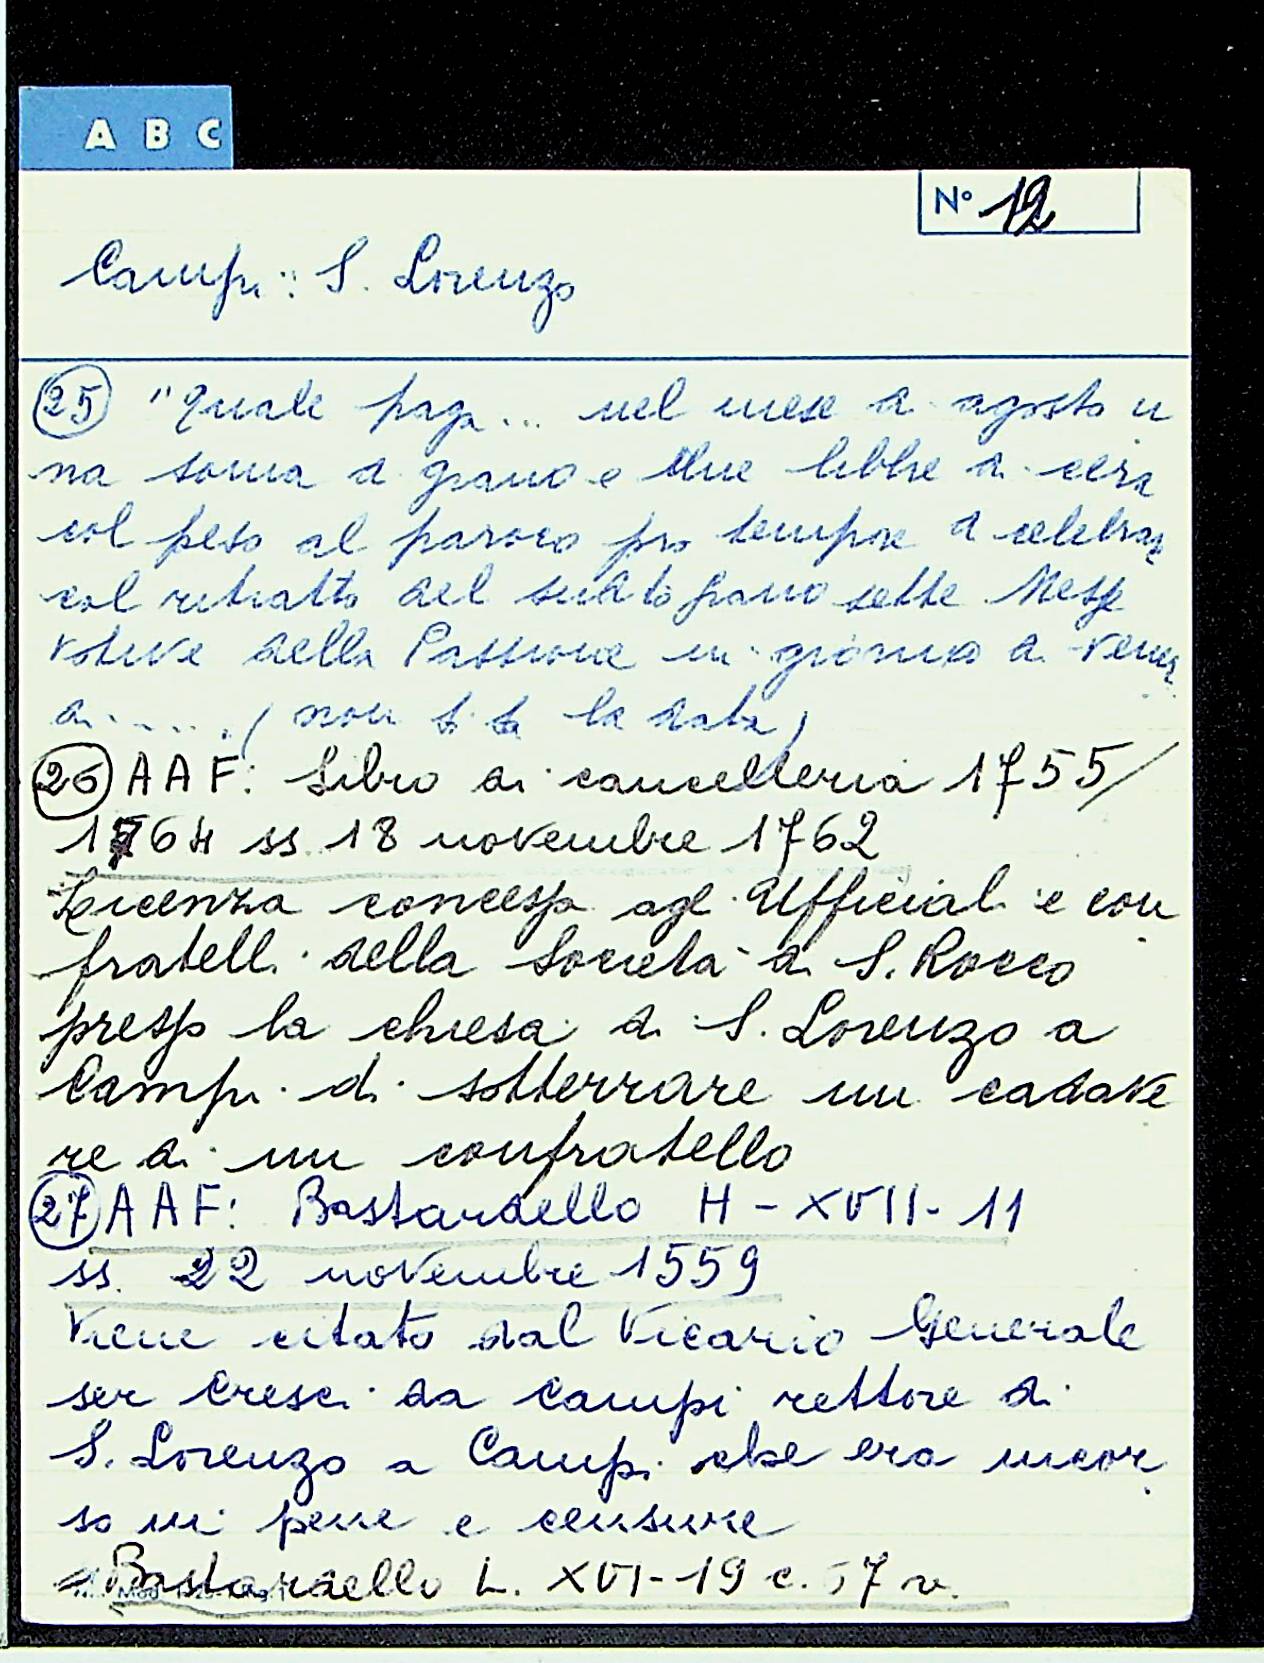 A B C
N° 12
Campi: S. Lorenzo
25 "Quale paga ... nel mese di agosto u
na soma di grano e due libbre di cera
col peso al paroco pro tempore di celebrar
col retratto del sud.to grano sette Messe
votive della Passione in giorno di Vener
di ..... (non si sa la data)
26 AAF: Libro di cancelleria 1755/
1764 ss. 18 novembre 1762
Licenza concessa agl. Ufficiali e con
fratelli della Società di S. Rocco
presso la chiesa di S. Lorenzo a
Campi di sotterrare un cadave
re di un confratello
27 AAF: Bastardello H - XVII - 11
ss. 22 novembre 1559
Viene citato dal Vicario Generale
ser Cresci da Campi rettore di
S. Lorenzo a Campi che era incor
so in pene e censure
Bastardello L. XVI - 19 c. 57 v.